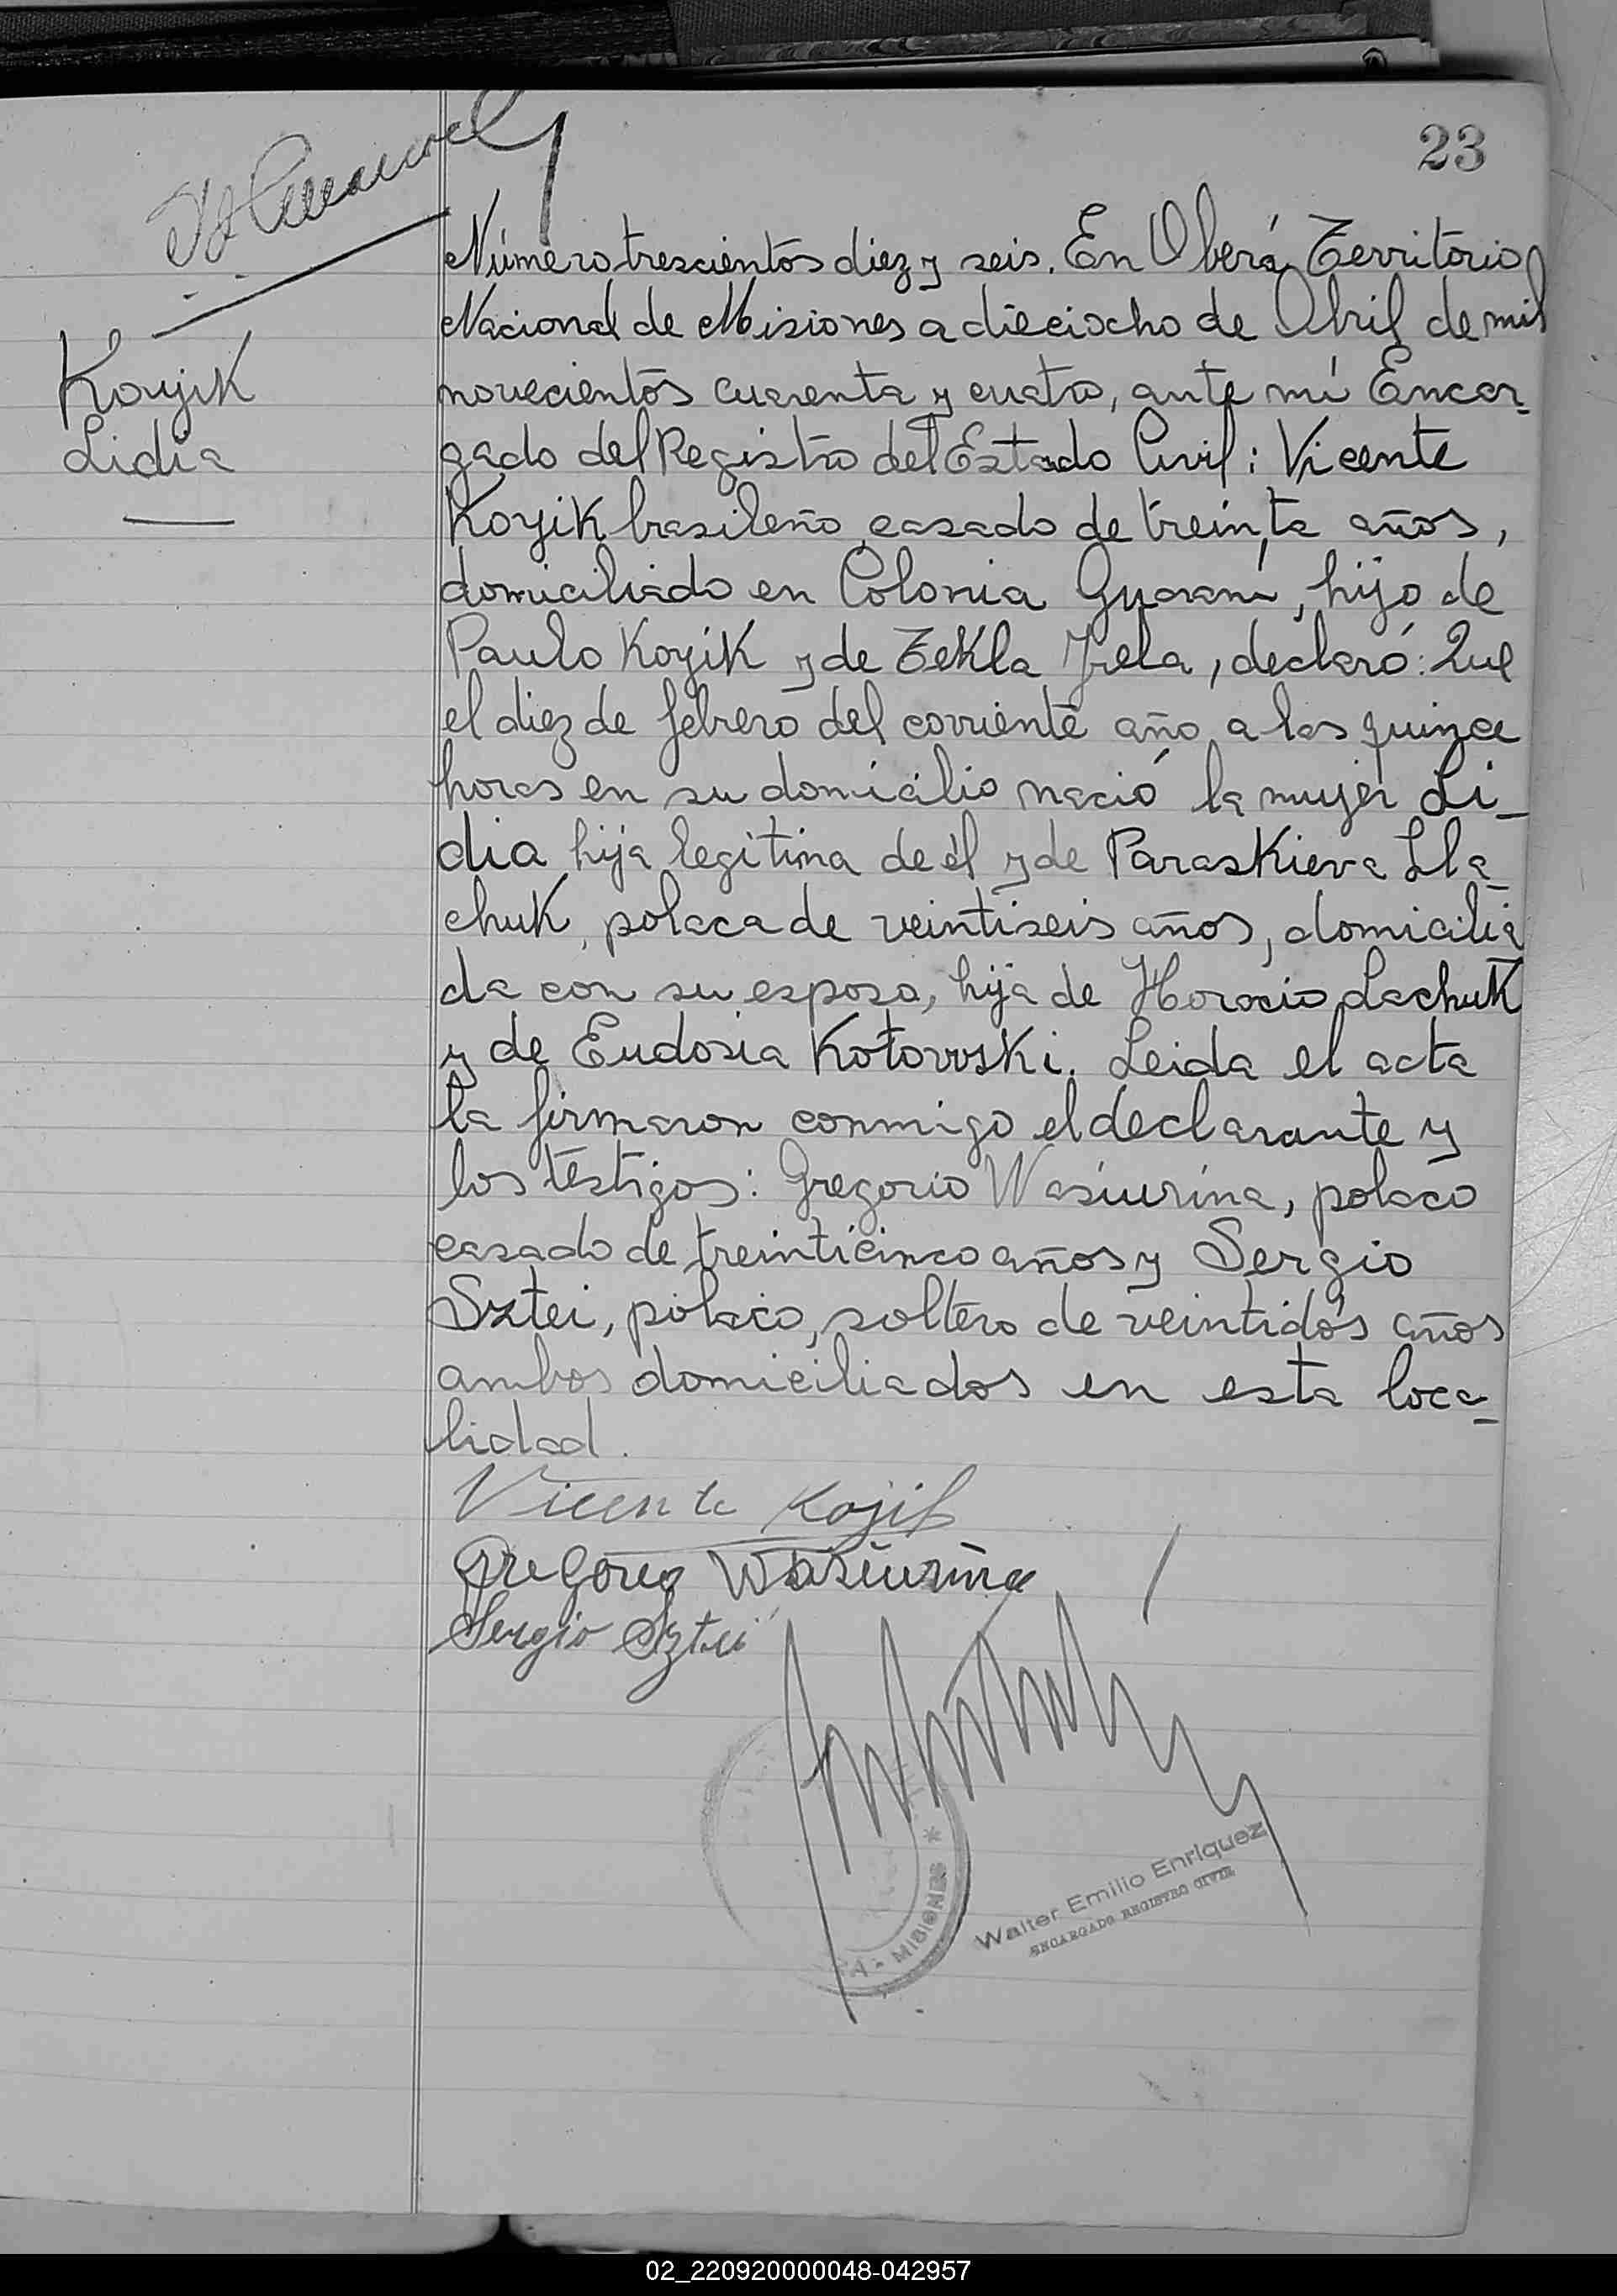 23
Número trescientos diez y seis. En Oberá, Territorio
Nacional de Misiones a dieciocho de Abril de mil
Koyik
novecientos cuarenta y cuatro, ante mí Encar-
Lidia
gado del Registro del Estado Civil: Vicente
Koyik brasileño, casado de treinta años,
domiciliado en Colonia Guaraní, hijo de
Paulo Koyik y de Tekla Jrela, declaró: Que
el diez de febrero del corriente año a las quince
horas en su domicilio nació la mujer Li-
dia hija legitima de él y de Paraskieva Lla-
chuk, polaca de veintiseis años, domicilia
da con su esposo, hija de Horacio Lachuk
y de Eudosia Kotowski. Leida el acta
la firmaron conmigo el declarante y
los testigos: Gregorio Wasiurina, polaco
casado de treinticinco años y Sergio
Sztei, polaco, soltero de veintidós años
ambos domiciliados en esta loca-
lidad.
Vicente Kojik
Gregorio Wasiurina
Sergio Sztei
Walter Emilio Enriquez
ENCARGADO REGISTRO CIVIL
A - MISIONES *
02_220920000048-042957